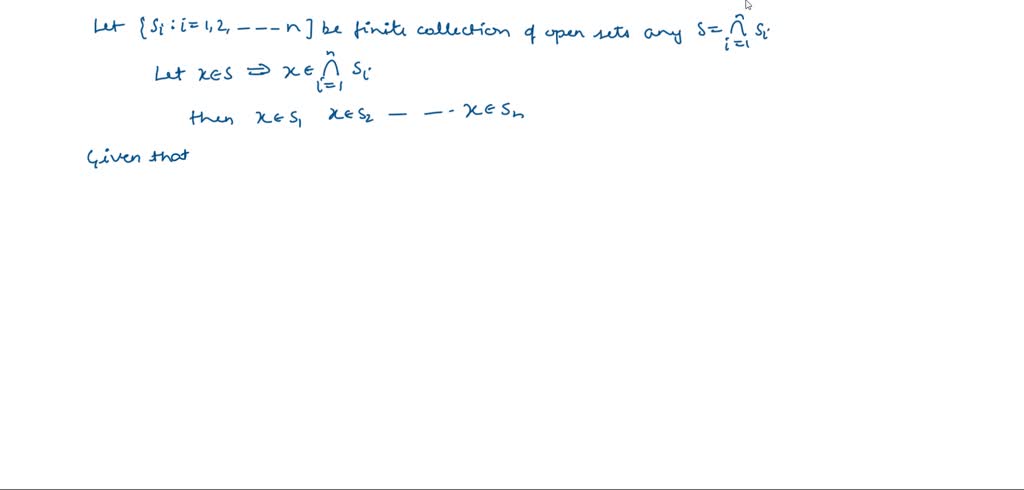 Let {Si : i = 1, 2, --- n] be finite collection of open sets any S = ⋂ⁿᵢ₌₁ Si
Let x∈S ⇒ x∈ ⋂ⁿᵢ₌₁ Si
then x∈S₁ x∈S₂ — —·· x∈Sₙ
Given that